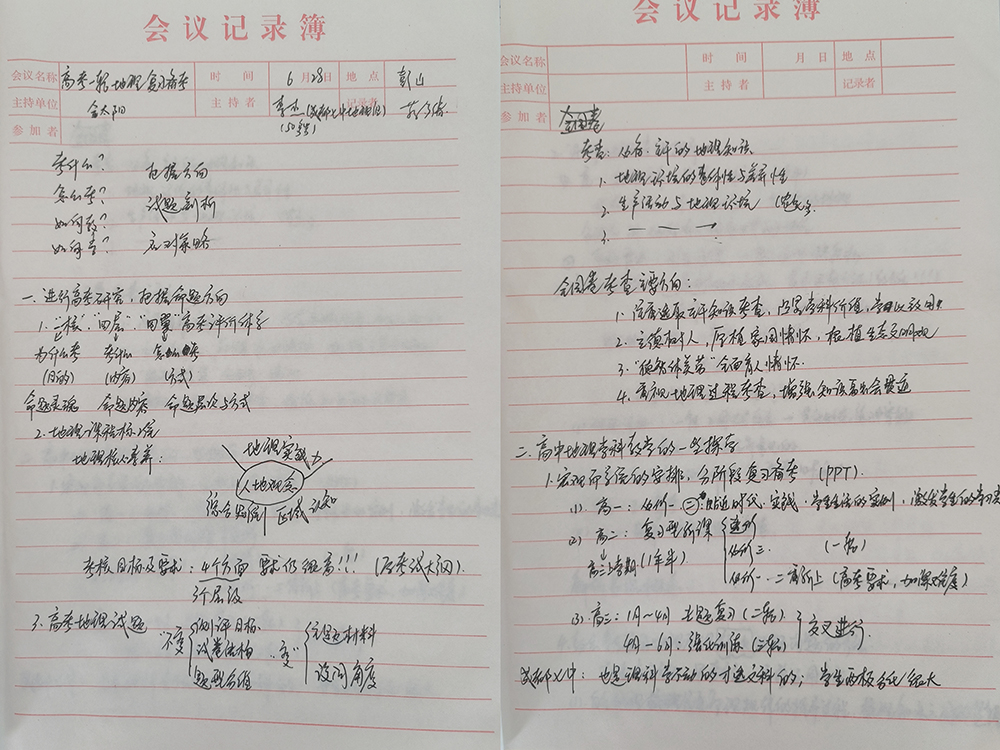 会议记录簿
会议名称 高考一轮地理复习备考 时间 6月28日 地点 彭山
主持单位 金太阳 主持者 李杰(成都七中地理组) 记录者
参加者
考什么? 把握方向
怎么考? 试题剖析
如何教?
如何考? 应对策略
一.进行高考研究,把握命题方向
1."一核""四层""四翼"高考评价体系
为什么考 考什么 怎么考
(目的) (内容) (方式)
命题灵魂 命题内容 命题层次与方式
2.地理课程标准
地理核心素养:
地理实践力
人地观念
综合思维 区域认知
考核目标及要求:4个方面 要求仍很高!!!(原考试大纲)
3个层级
3.高考地理试题
"不变" 测评目标 试卷结构 题型分值
"变" 主题材料 设问角度
会议记录簿
会议名称 时间 月 日 地点
主持单位 主持者 记录者
参加者
全国卷
考查:必备.主干的地理知识
1.地理环境的整体性与差异性
2.生产活动与地理环境
3.
全国卷考查主要方向:
2.立德树人,厚植家国情怀,根植生态文明观
3."德智体美劳"全面育人情怀
4.重视地理过程考查,增强知识融会贯通
二.高中地理学科教学的一些探索
1.宏观而系统的安排,分阶段复习备考 (PPT)
(1) 高一:必修一 贴近时代.实践.学生生活的案例,激发学生的学习
(2) 高二:复习型新课 选修
高三上学期(1年半) 必修三 (一轮)
必修一.二高频上(高考要求,加深难度)
(3) 高三:1月~4月 专题复习(二轮)
4月~6月:强化训练(三轮) 交叉进行
成都七中:地是理科学不动的才选文科的;学生两极分化很大